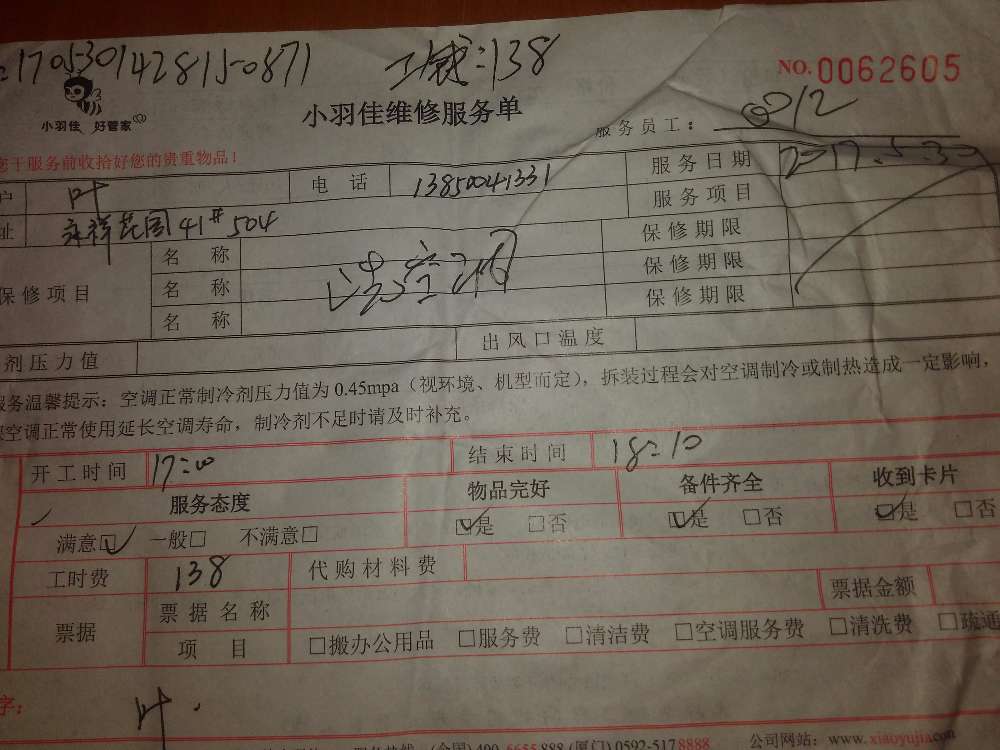 170530142815-0871 138
NO.0062605
小羽佳 好管家
小羽佳维修服务单
服务员工： 0812
您于服务前收拾好您的贵重物品！
户 叶 电 话 13850041331 服务日期 2017.5.30
址 永祥花园41#504 服务项目
保修项目 名 称 洗空调 保修期限
名 称 保修期限
名 称 保修期限
剂压力值 出风口温度
服务温馨提示：空调正常制冷剂压力值为 0.45mpa（视环境、机型而定），拆装过程会对空调制冷或制热造成一定影响，
空调正常使用延长空调寿命，制冷剂不足时请及时补充。
开工时间 17:00 结束时间 18:10
服务态度 物品完好 备件齐全 收到卡片
满意☑ 一般□ 不满意□ ☑是 □否 ☑是 □否 ☑是 □否
工时费 138 代购材料费
票据 票据名称 票据金额
项 目 □搬办公用品 □服务费 □清洁费 □空调服务费 □清洗费 □疏通
字： 叶
(全国) 400-6655888 (厦门) 0592-5178888 公司网站：www.xiaoyujia.com